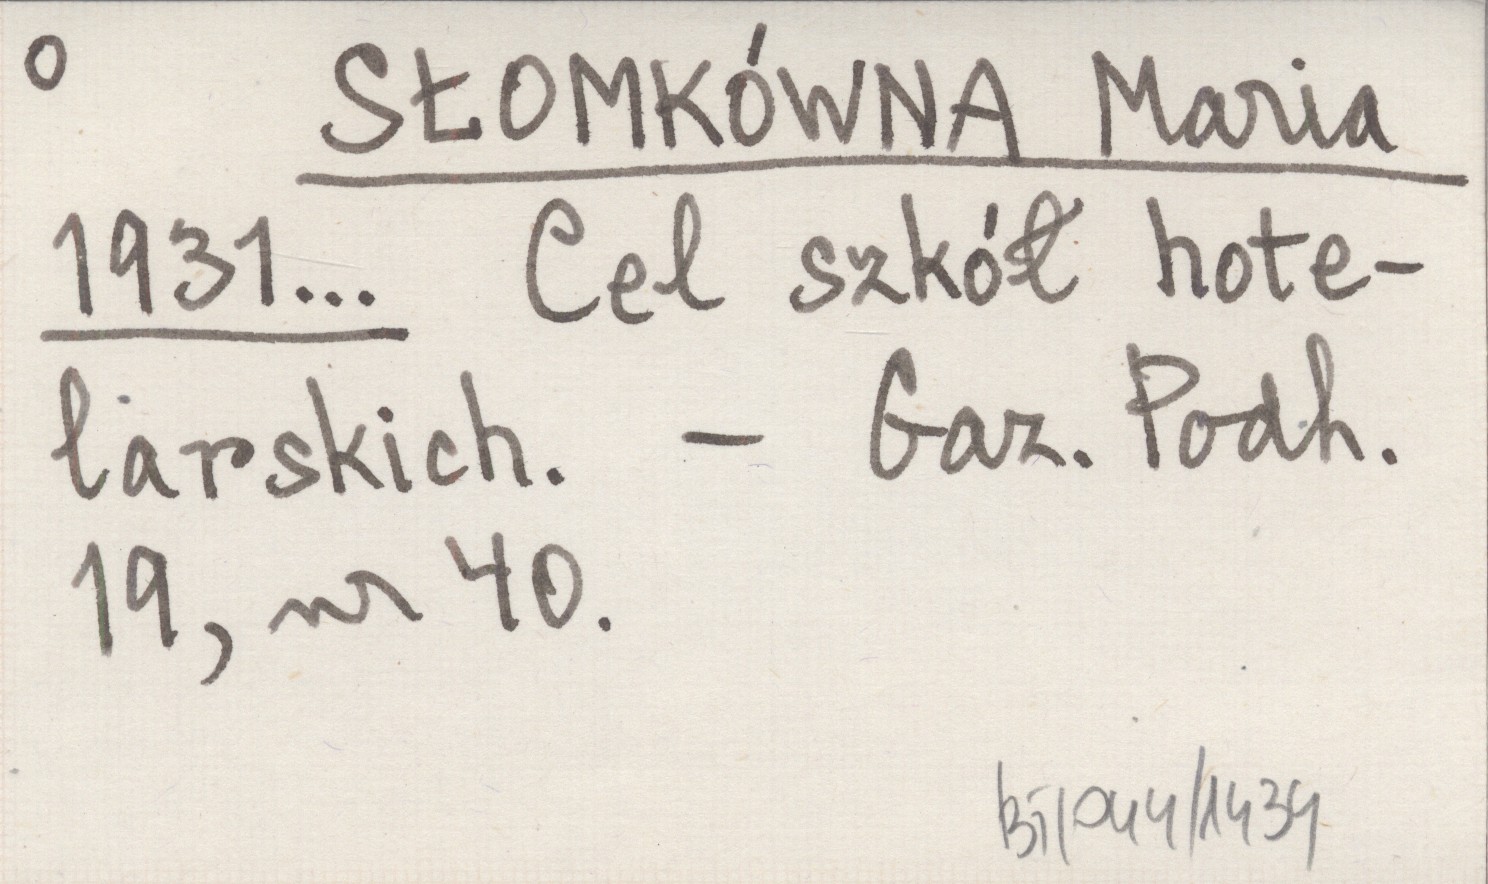 o SŁOMKÓWNA Maria
1931... Cel szkół hote-
larskich. - Gaz. Podh.
19, nr 40.